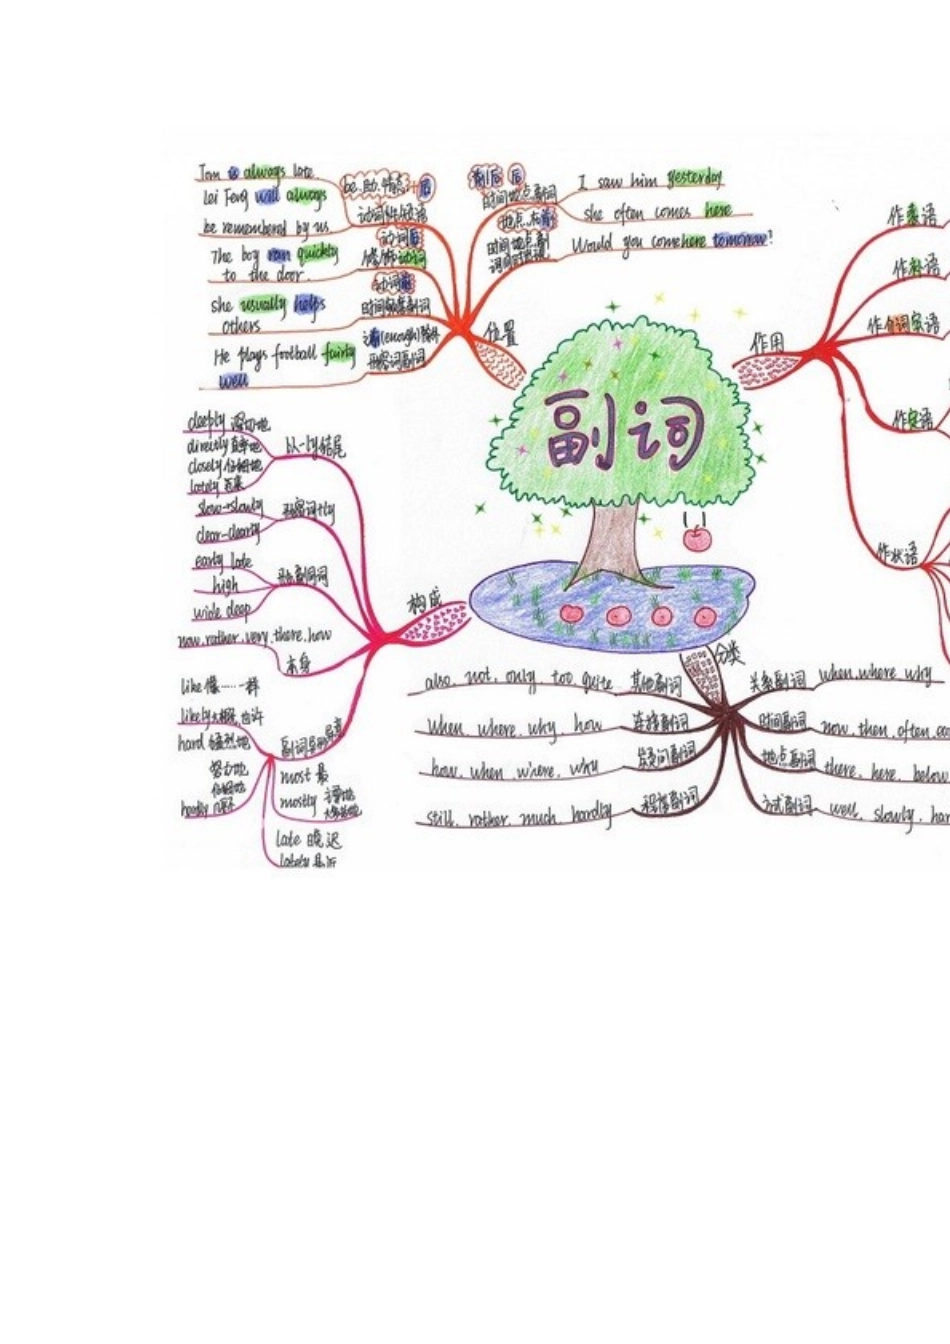 副词
位置
Tom is always late
Lei Feng will always
be remembered by us
The boy ran quickly
to the door.
she usually helps
others
He plays football fairly
well
be.助.情态+后
动词后
修饰动词
动词前
时间频率副词
形容词副词
句后 后
时间地点副词
时间地点副
I saw him yesterday
she often comes here
Would you come here tomorrow?
作用
作表语
作补语
作介词宾语
作定语
作状语
构成
以-ly结尾
deeply 深切地
directly 直率地
closely 仔细地
lately 近来
形容词+ly
slow→slowly
clear-clearly
early late
high
wide deep
now.rather.very.there.how
本身
like 像……一样
likely 大概 也许
hard 猛烈地
努力地
hardly 几乎不
most 最
mostly
late 晚 迟
lately 最近
分类
also. not. only. too. quite 其他副词
when. where. why. how 连接副词
how. when where. why 疑问副词
still. rather. much. hardly 程度副词
关系副词 when.where why
时间副词 now. then. often.
地点副词 there. here. below
方式副词 well. slowly.